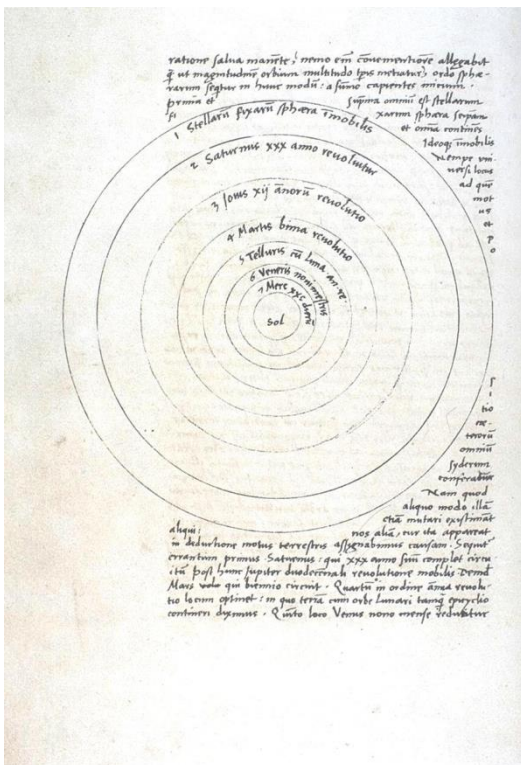 ratione salua manente, nemo em̄ conuenientiorē allegabit
q̄ ut magnitudinē orbium multitudo tꝑis metiatur, ordo sphæ-
rarum seqtur in hunc modū: a sūmo capientes initium.
prima et suprema omniū est stellarum
fi xarum sphæra seipsam
et omnia continēs
Ideoqꝫ īmobilis
Nempe vni
uersi locus
ad quē
mot
us
et
p
o
1 Stellarū fixarū sphæra īmobilis
2 Saturnus xxx anno reuoluitur
3 Iouis xij annorū reuolutio
4 Martis bima reuolutio
5 Telluris cū Luna an. re.
6 Veneris nonimestris
7 Merc xxc dierū
Sol
s
i
tio
cæ-
terorū
omniū
syderum
conferatur
Nam quod
aliquo modo illā
etiā mutari existimāt
aliqui: nos aliā, cur ita appareat
in deductione motus terrestris assignabimus causam. Sequit᷑
errantium primus Saturnus: qui xxx anno suū complet circu
itū post hunc Iupiter duodecennali reuolutione mobilis Deinde
Mars volo qui biennio circuit. Quartū in ordine annua reuolu-
tio locum optinet: in quo terrā cum orbe Lunari tamq̄ epicyclio
contineri diximus. Quinto loco Venus nono mense reducitur